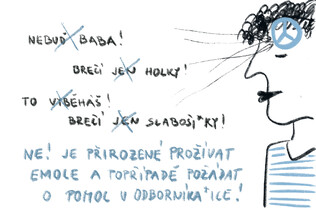 NEBUĎ BABA!
BREČÍ JEN HOLKY!
TO VYBĚHÁŠ!
BREČÍ JEN SLABOŠI*KY!
NE! JE PŘIROZENÉ PROŽÍVAT
EMOCE A POPŘÍPADĚ POŽÁDAT
O POMOC U ODBORNÍKA*ICE!